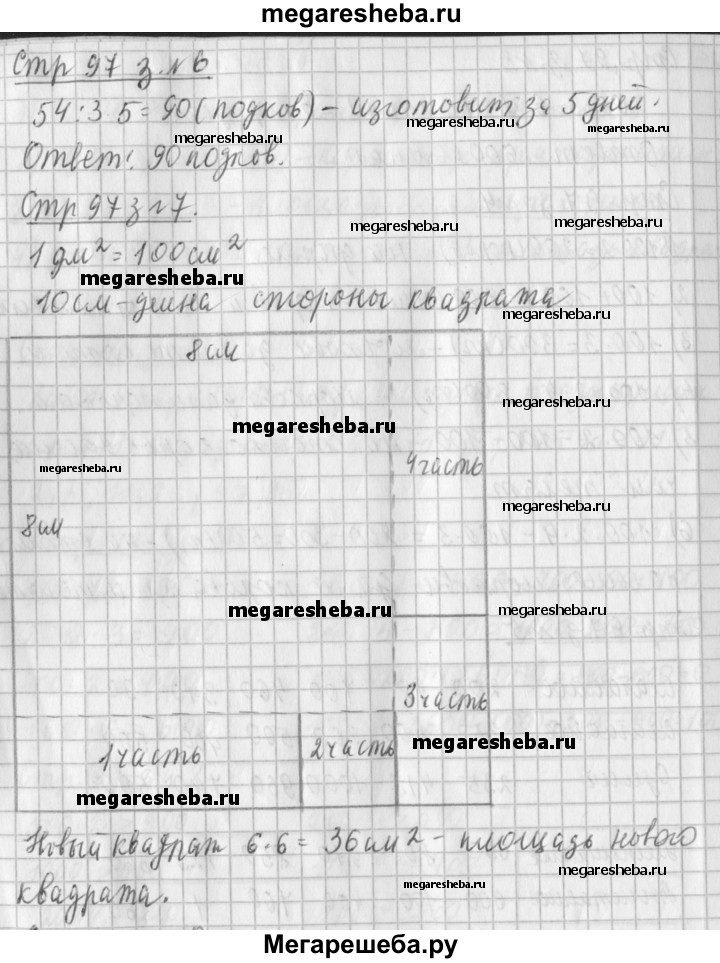 megaresheba.ru
Стр 97 з. № 6
54:3 5=90(подков) - изготовит за 5 дней.
megaresheba.ru
megaresheba.ru
megaresheba.ru
Ответ: 90 подков.
Стр 97 з № 7.
megaresheba.ru
megaresheba.ru
1 дм²=100см²
megaresheba.ru
10см-длина стороны квадрата
megaresheba.ru
8см
megaresheba.ru
megaresheba.ru
megaresheba.ru
4 часть
megaresheba.ru
8см
megaresheba.ru
megaresheba.ru
3 часть
1 часть
2 часть
megaresheba.ru
megaresheba.ru
Новый квадрат 6·6=36см² - площадь нового
megaresheba.ru
megaresheba.ru
квадрата.
Мегарешеба.ру